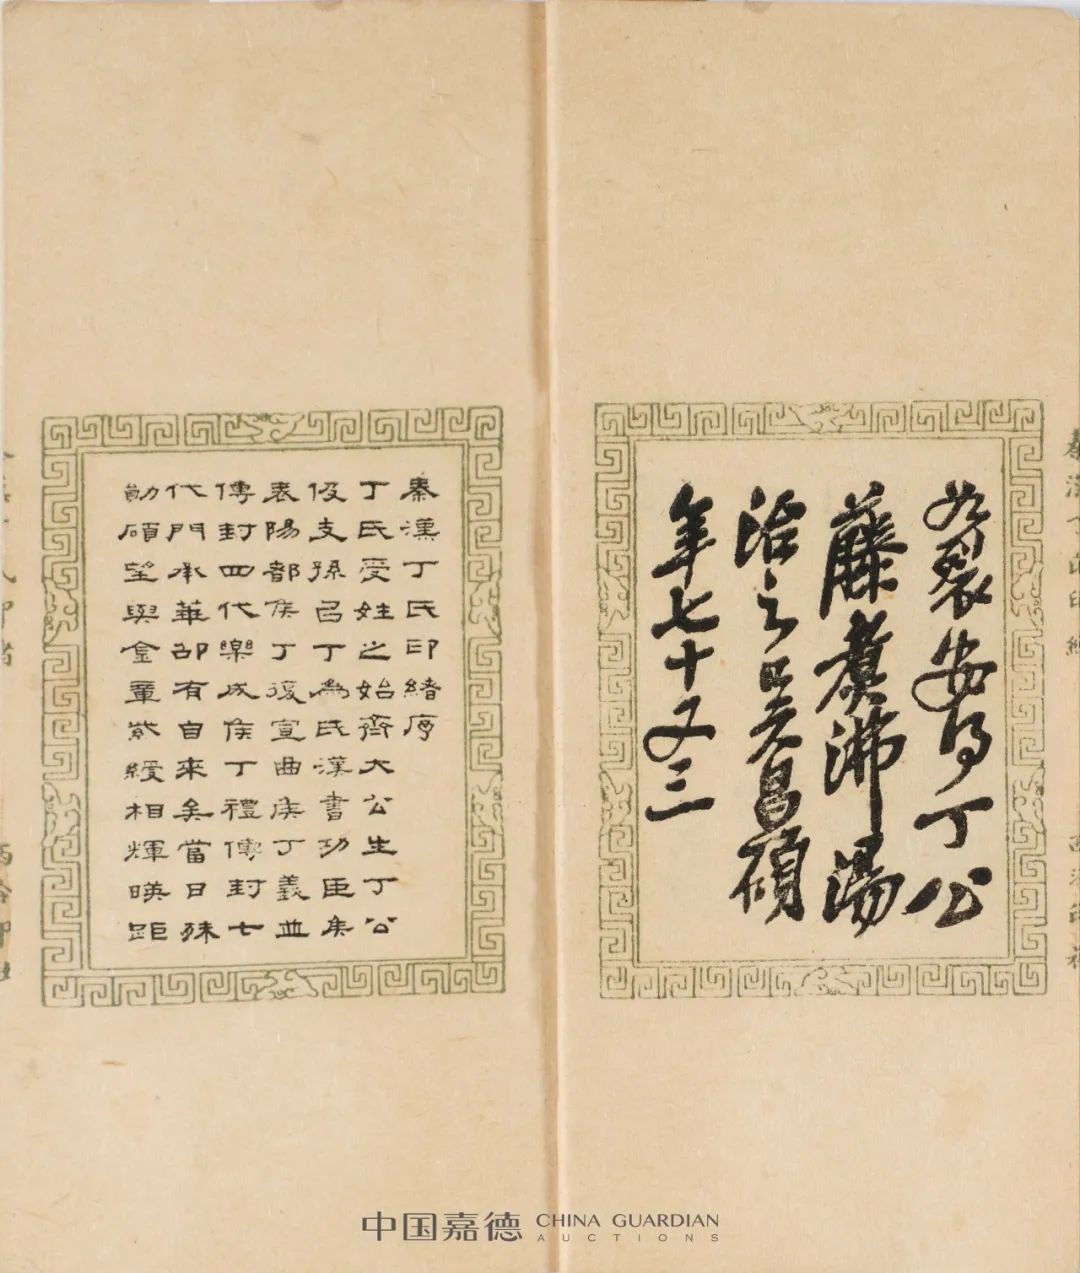 裂 丁公
藤煮沸湯
治之吳昌碩
年七十又三
秦漢丁氏印緒序
丁氏受姓之始齊大公生丁公
伋支孫㠯丁為氏漢書功臣矦
表陽都矦丁復宣曲矦丁義並
傳封四代樂成矦丁禮傳封七
代門承華邵有自來矣當日殊
勛碩望與金章紫綬相輝暎距
中国嘉德 CHINA GUARDIAN
AUCTIONS